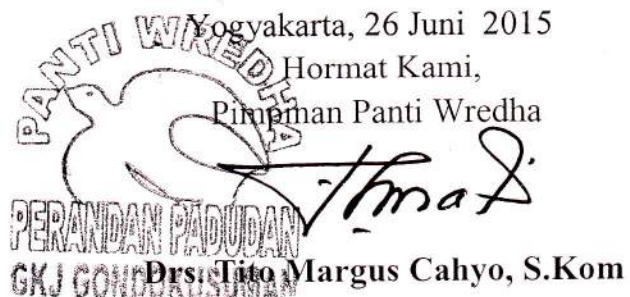 Yogyakarta, 26 Juni 2015
Hormat Kami,
Pimpinan Panti Wredha
PANTI WREDHA
PERANDAN PADUDAN
GKJ GONDOKUSUMAN
Drs. Tito Margus Cahyo, S.Kom